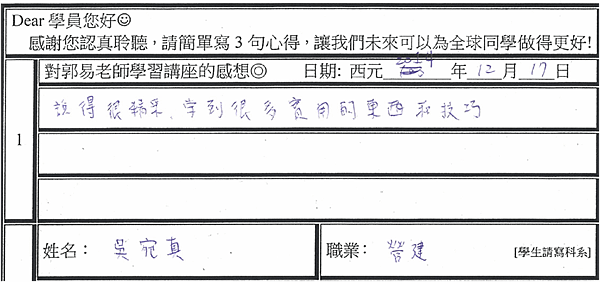 Dear 學員您好☺
感謝您認真聆聽，請簡單寫 3 句心得，讓我們未來可以為全球同學做得更好!
對郭易老師學習講座的感想◎ 日期: 西元 2014 年 12 月 17 日
1
說得很精采，学到很多實用的東西和技巧
姓名： 吳宛真 職業： 營建 [學生請寫科系]